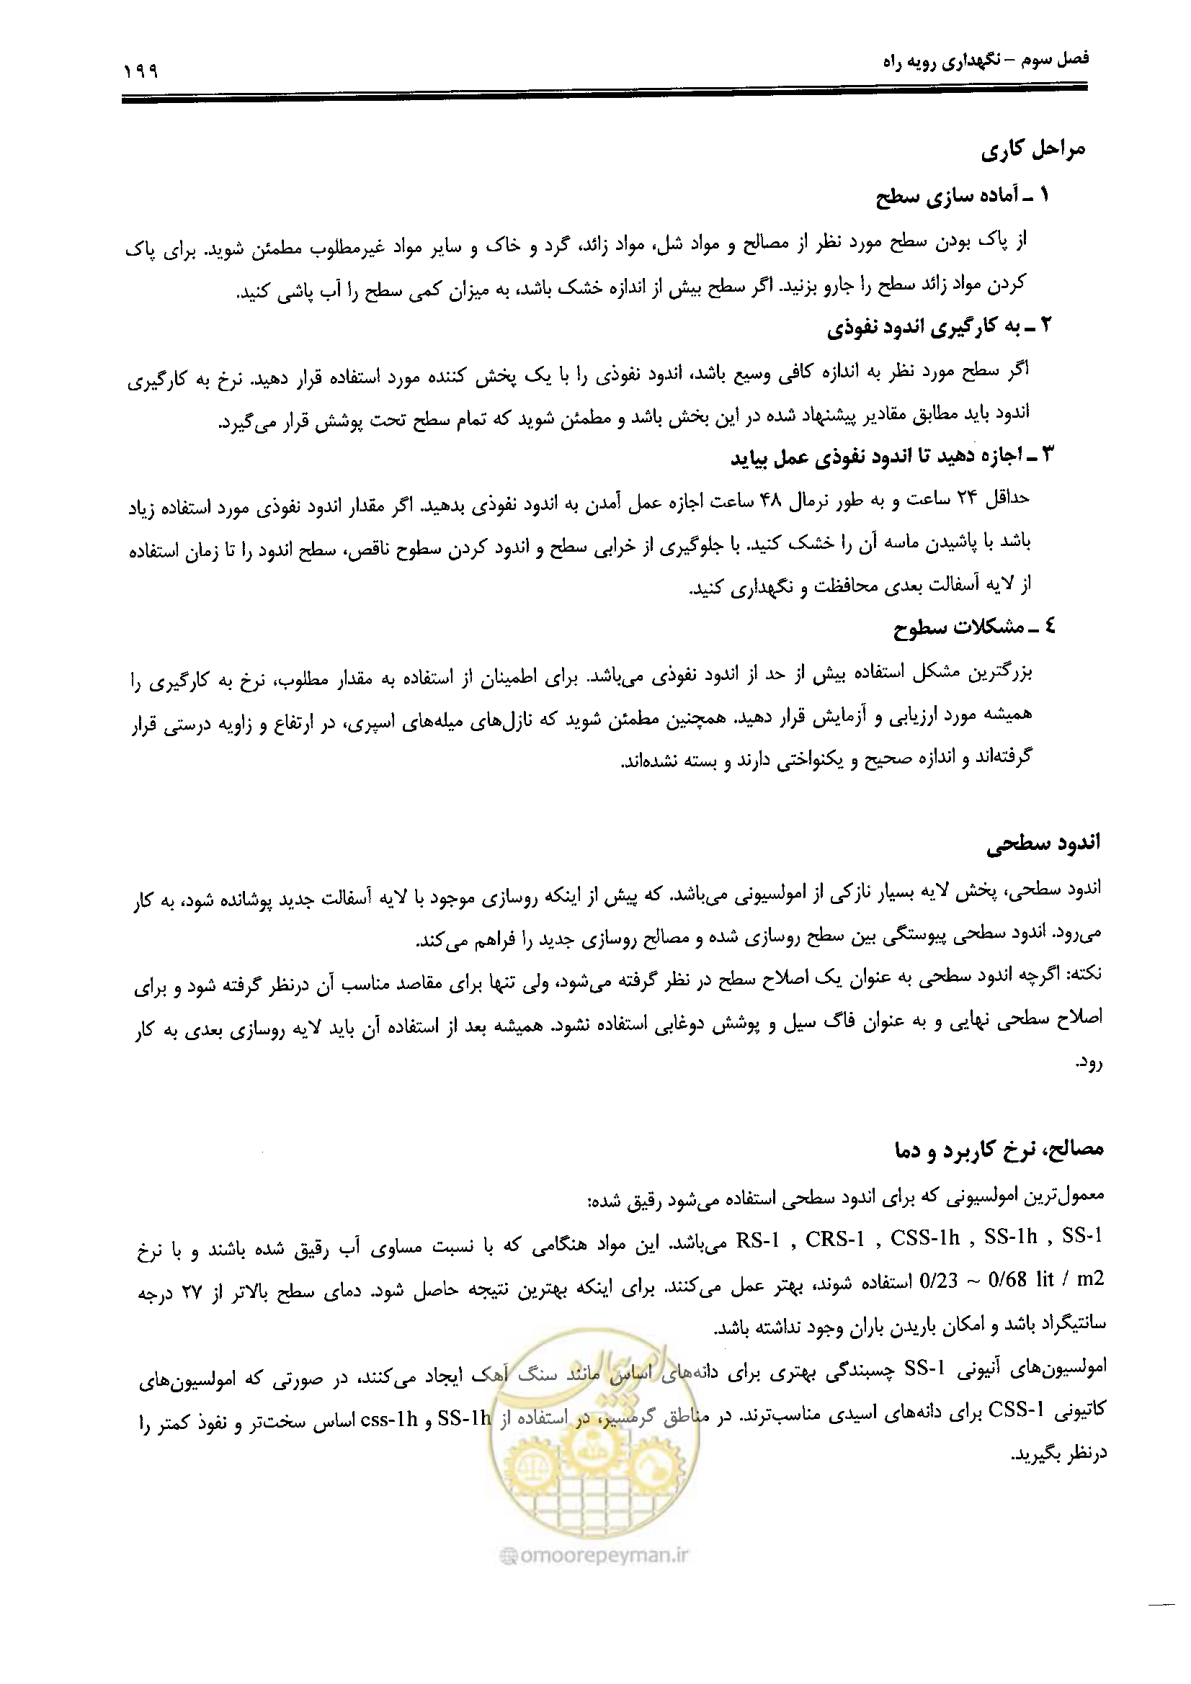 فصل سوم – نگهداری رویه راه
۱۹۹
مراحل کاری
۱ ـ آماده سازی سطح
از پاک بودن سطح مورد نظر از مصالح و مواد شل، مواد زائد، گرد و خاک و سایر مواد غیرمطلوب مطمئن شوید. برای پاک
کردن مواد زائد سطح را جارو بزنید. اگر سطح بیش از اندازه خشک باشد، به میزان کمی سطح را آب پاشی کنید.
۲ ـ به کارگیری اندود نفوذی
اگر سطح مورد نظر به اندازه کافی وسیع باشد، اندود نفوذی را با یک پخش کننده مورد استفاده قرار دهید. نرخ به کارگیری
اندود باید مطابق مقادیر پیشنهاد شده در این بخش باشد و مطمئن شوید که تمام سطح تحت پوشش قرار می‌گیرد.
۳ ـ اجازه دهید تا اندود نفوذی عمل بیاید
حداقل ۲۴ ساعت و به طور نرمال ۴۸ ساعت اجازه عمل آمدن به اندود نفوذی بدهید. اگر مقدار اندود نفوذی مورد استفاده زیاد
باشد با پاشیدن ماسه آن را خشک کنید. با جلوگیری از خرابی سطح و اندود کردن سطوح ناقص، سطح اندود را تا زمان استفاده
از لایه آسفالت بعدی محافظت و نگهداری کنید.
٤ ـ مشکلات سطوح
بزرگترین مشکل استفاده بیش از حد از اندود نفوذی می‌باشد. برای اطمینان از استفاده به مقدار مطلوب، نرخ به کارگیری را
همیشه مورد ارزیابی و آزمایش قرار دهید. همچنین مطمئن شوید که نازل‌های میله‌های اسپری، در ارتفاع و زاویه درستی قرار
گرفته‌اند و اندازه صحیح و یکنواختی دارند و بسته نشده‌اند.
اندود سطحی
اندود سطحی، پخش لایه بسیار نازکی از امولسیونی می‌باشد. که پیش از اینکه روسازی موجود با لایه آسفالت جدید پوشانده شود، به کار
می‌رود. اندود سطحی پیوستگی بین سطح روسازی شده و مصالح روسازی جدید را فراهم می‌کند.
نکته: اگرچه اندود سطحی به عنوان یک اصلاح سطح در نظر گرفته می‌شود، ولی تنها برای مقاصد مناسب آن درنظر گرفته شود و برای
اصلاح سطحی نهایی و به عنوان فاگ سیل و پوشش دوغابی استفاده نشود. همیشه بعد از استفاده آن باید لایه روسازی بعدی به کار
رود.
مصالح، نرخ کاربرد و دما
معمول‌ترین امولسیونی که برای اندود سطحی استفاده می‌شود رقیق شده:
RS-1 , CRS-1 , CSS-1h , SS-1h , SS-1 می‌باشد. این مواد هنگامی که با نسبت مساوی آب رقیق شده باشند و با نرخ
0/23 ~ 0/68 lit / m2 استفاده شوند، بهتر عمل می‌کنند. برای اینکه بهترین نتیجه حاصل شود. دمای سطح بالاتر از ۲۷ درجه
سانتیگراد باشد و امکان باریدن باران وجود نداشته باشد.
امولسیون‌های آنیونی SS-1 چسبندگی بهتری برای دانه‌های اساس مانند سنگ آهک ایجاد می‌کنند، در صورتی که امولسیون‌های
کاتیونی CSS-1 برای دانه‌های اسیدی مناسب‌ترند. در مناطق گرمسیر، در استفاده از SS-1h و css-1h اساس سخت‌تر و نفوذ کمتر را
درنظر بگیرید.
امور پیمان
@omoorepeyman.ir